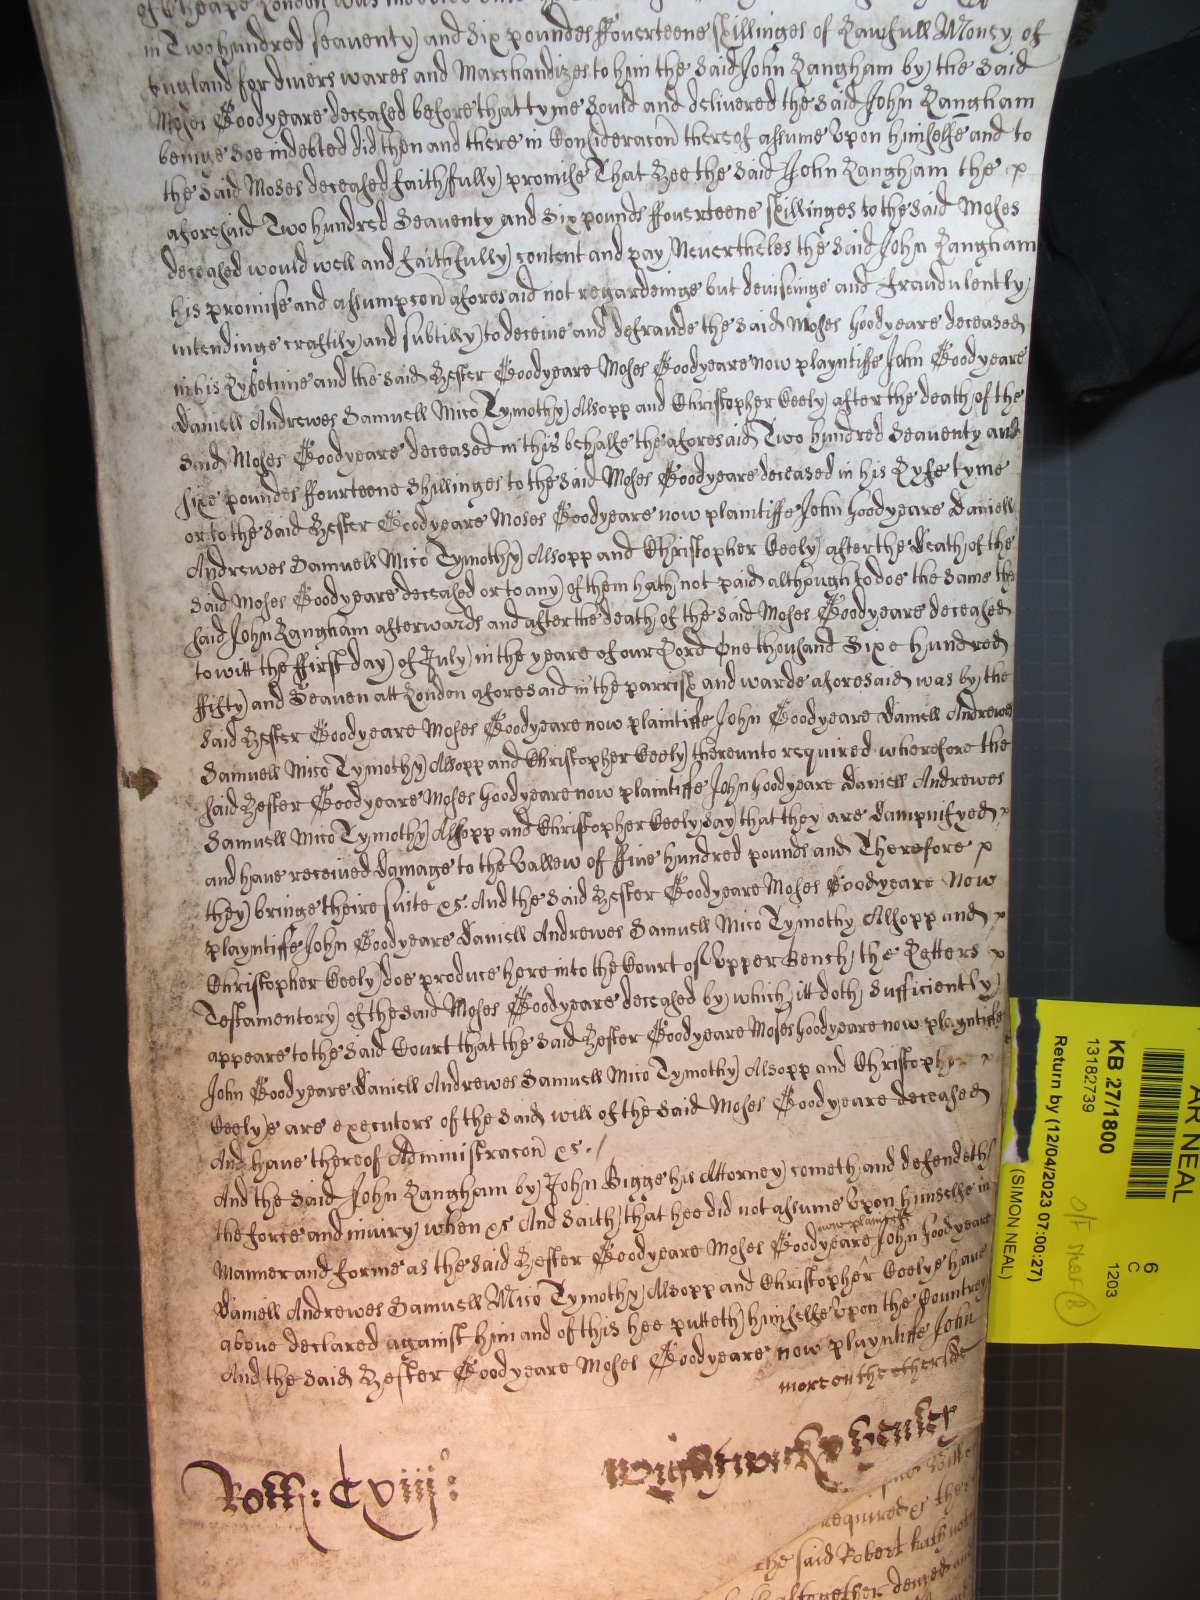 of Cheape London was
in Two hundred seaventy and Six poundes ffoverteene shillinges of Lawfull Money of
England for divers wares and Marchandizes to him the said John Langham by the said
Moses Goodyeare deceased before that tyme Sould and delivered the said John Langham
beinge soe indebted did then and there in Consideracon thereof assume upon himselfe and to
the said Moses deceased faithfully promise That Hee the said John Langham the
aforesaid Two hundred Seaventy and Six pounds ffoverteene shillinges to the said Moses
deceased would well and faithfully content and pay Nevertheles the said John Langham
his promise and assumpcon aforesaid not regardeinge but deviseinge and fraudulently
intendinge craftily and subtilly to deceive and defraude the said Moses Goodyeare deceased
in his Lyfetime and the said Hester Goodyeare Moses Goodyeare now playntiffe John Goodyeare
Daniell Andrewes Samuell Mico Tymothy Alsopp and Christopher Ceely after the death of the
said Moses Goodyeare deceased in this behalfe the aforesaid Two hundred Seaventy and
sixe poundes ffourteene Shillinges to the said Moses Goodyeare deceased in his Lyfe tyme
or to the said Hester Goodyeare Moses Goodyeare now plaintiffe John Goodyeare Daniell
Andrewes Samuell Mico Tymothy Alsopp and Christopher Ceely after the death of the
said Moses Goodyeare deceased or to any of them hath not paid although to doe the same the
said John Langham afterwards and after the death of the said Moses Goodyeare deceased
to witt the ffirst day of July in the yeare of our Lord One thousand Sixe hundred
ffifty and Seaven att London aforesaid in the parrish and warde aforesaid was by the
said Hester Goodyeare Moses Goodyeare now plaintiffe John Goodyeare Daniell Andrewes
Samuell Mico Tymothy Alsopp and Christopher Ceely thereunto required wherefore the
said Hester Goodyeare Moses Goodyeare now plaintiffe John Goodyeare Daniell Andrewes
Samuell Mico Tymothy Alsopp and Christopher Ceely say that they are dampnifyed
and have received damage to the Vallew of ffive hundred pounds and Therefore
they bringe theire suite &c. And the said Hester Goodyeare Moses Goodyeare Now
playntiffe John Goodyeare Daniell Andrewes Samuell Mico Tymothy Alsopp and
Christopher Ceely doe produce here into the Court of Upper Bench the Letters
Testamentory of the said Moses Goodyeare deceased by which itt doth Sufficiently
appeare to the said Court that the said Hester Goodyeare Moses Goodyeare now playntiffe
John Goodyeare Daniell Andrewes Samuell Mico Tymothy Alsopp and Christopher
Ceelye are executors of the said will of the said Moses Goodyeare deceased
And have thereof Administracon &c. /
And the said John Langham by John Bigge his Attorney cometh and defendeth
the force and iniury when &c And Saith that hee did not assume Upon himselfe in
now plaintiffe
Manner and forme as the said Hester Goodyeare Moses Goodyeare John Goodyeare
Daniell Andrewes Samuell Mico Tymothy Alsopp and Christopher Ceelye have
above declared against him and of this hee putteth himselfe Upon the Countrey
And the said Hester Goodyeare Moses Goodyeare now playntiffe John
more on the other side
Rott: Cxiij:
required &c the
the said Robert hath not
altogether denyed and
AR NEAL
KB 27/1800
13182739
Return by (12/04/2023 07:00:27)
(SIMON NEAL)
6
C
1203